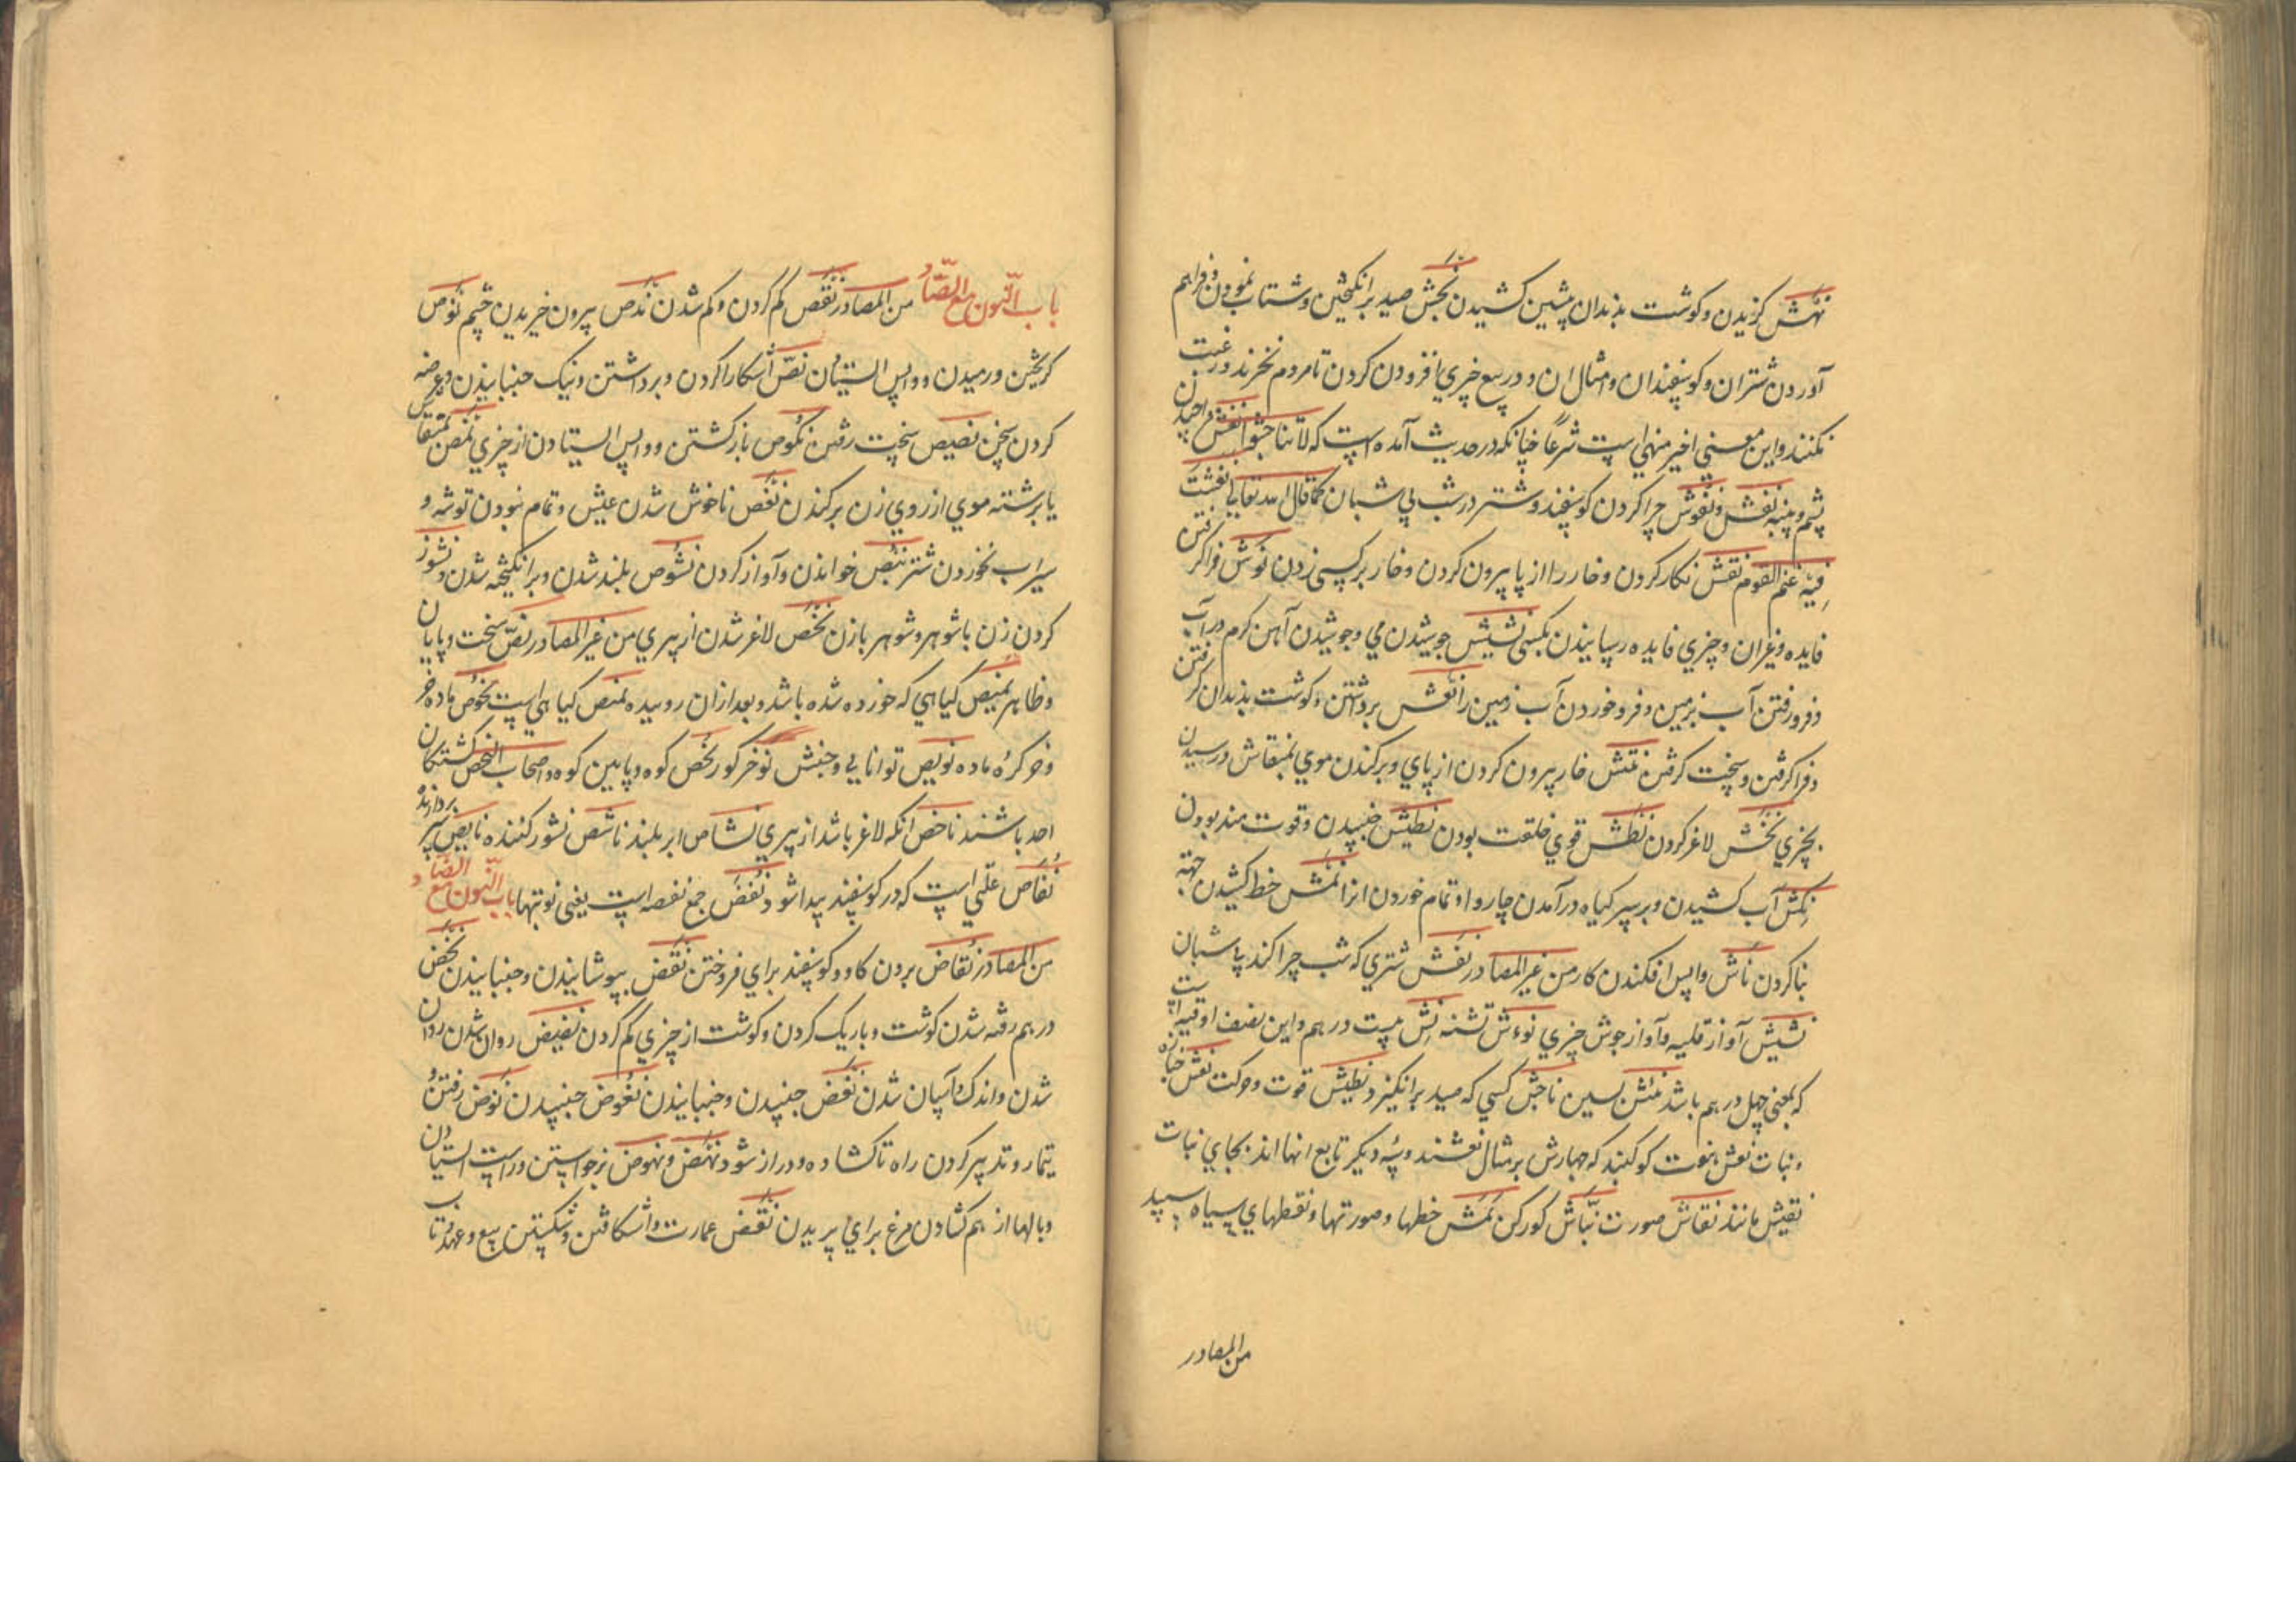 نهش گزیدن و گوشت بدندان پیشین کشیدن نجش صید برانگیختن و شتاب نمودن و فراهم
آوردن شتران و گوسفندان و امثال ان و در بیع چیزي افزودن کردن تا مردم نخرند و رغبت
نکنند و این معنی اخیر منهی است شرعاً چنانکه در حدیث آمده است که لا تناجشوا نفش واچیدن
پشم و پنبه نفش و نفوش چرا کردن گوسفند و شتر در شب بی شبان کما قال الله تعالی نفشت
فیه غنم القوم نقش نگار کردن و خار را از پا بیرون کردن و خار بر کسی زدن نوش فرا گرفتن
فایده و غیر ان و چیزي فایده رسانیدن بکسی نشیش جوشیدن می و جوشیدن آهن گرم در آب
و فرو رفتن آب بزمین و فرو خوردن آب زمین را نعش برداشتن و گوشت بدندان گرفتن
و فرا گرفتن و سخت گرفتن نتش خار بیرون کردن از پای و برکندن موي بمنقاش در رسیدن
بچیزي نخش لاغر کردن نطش قوي خلقت بودن نطیش جنبیدن و قوت مند بودن
نکش آب کشیدن و بر سر گیاه در آمدن چاروا و تمام خوردن انرا نمش خط کشیدن جهة
بنا کردن ناش واپس افکندن کار من غیر المصادر نفش شتري که شب چرا کند بی شبان
نشیش آواز قلیه و آواز جوش چیزي نوءش تشنه نش بیست درهم و این نصف اوقیه است
که بمعنی چهل درهم باشد نئش پسین ناجش کسی که صید برانگیزد نطیش قوت و حرکت نعش جنازه
و بنات نعش هفت کوکبند که چهارش بر مثال نعشند و سه دیگر تابع انها اند بجاي بنات
نقیش مانند نقاش صورت نباش گور کن نمش خطها و صورتها و نقطهاي سیاه سپید
من المصادر
باب النون مع الصاد من المصادر نقص کم کردن و کم شدن ندص بیرون خیزیدن چشم نوص
گریختن و رمیدن و واپس استادن نص اشکارا کردن و برداشتن و نیک جنبانیدن و عرضه
کردن سخن نصیص سخت رفتن نکوص بازگشتن و واپس ایستادن از چیزي نمص بمنقاش
یا برشته موي از روي زن برکندن نغص ناخوش شدن عیش و تمام نبودن توشه و
سیراب نخوردن شتر نبص خواندن و آواز کردن نشوص بلند شدن و برانگیخته شدن و نشوز
کردن زن با شوهر و شوهر با زن نخص لاغر شدن از پیري من غیر المصادر نص سخت و پایان
و ظاهر نمیص گیاهی که خورده شده باشد و بعد ازان روییده نمص گیاهی است نحوص ماده خر
و خر کره ماده نویص توانایی و جنبش نوص خر گور نحص کوه و پایین کوه و اصحاب النحص کشتگان
احد باشند ناخص انکه لاغر باشد از پیري نشاص ابر بلند ناشص نشوز کننده
نفاص علتی است که در گوسفند پیدا شود نفص جمع نفصه است یعنی نوبتها باب النون مع الضاد
من المصادر نفاض بردن گاو و گوسفند براي فروختن نفض پوشانیدن و جنبانیدن نحض
درهم رفته شدن گوشت و باریک کردن و گوشت از چیزي کم کردن نضیض روان شدن روان
شدن و اندک و آسان شدن نغض جنبیدن و جنبانیدن نغوض جنبیدن نوض رفتن و
تیمار و تدبیر کردن راه تا گشاده و دراز شود نهض و نهوض برخواستن و راست ایستادن
و بالها از هم گشادن مرغ براي پریدن نقض عمارت وا شکافتن و شکستن بیع و عهد و تاب